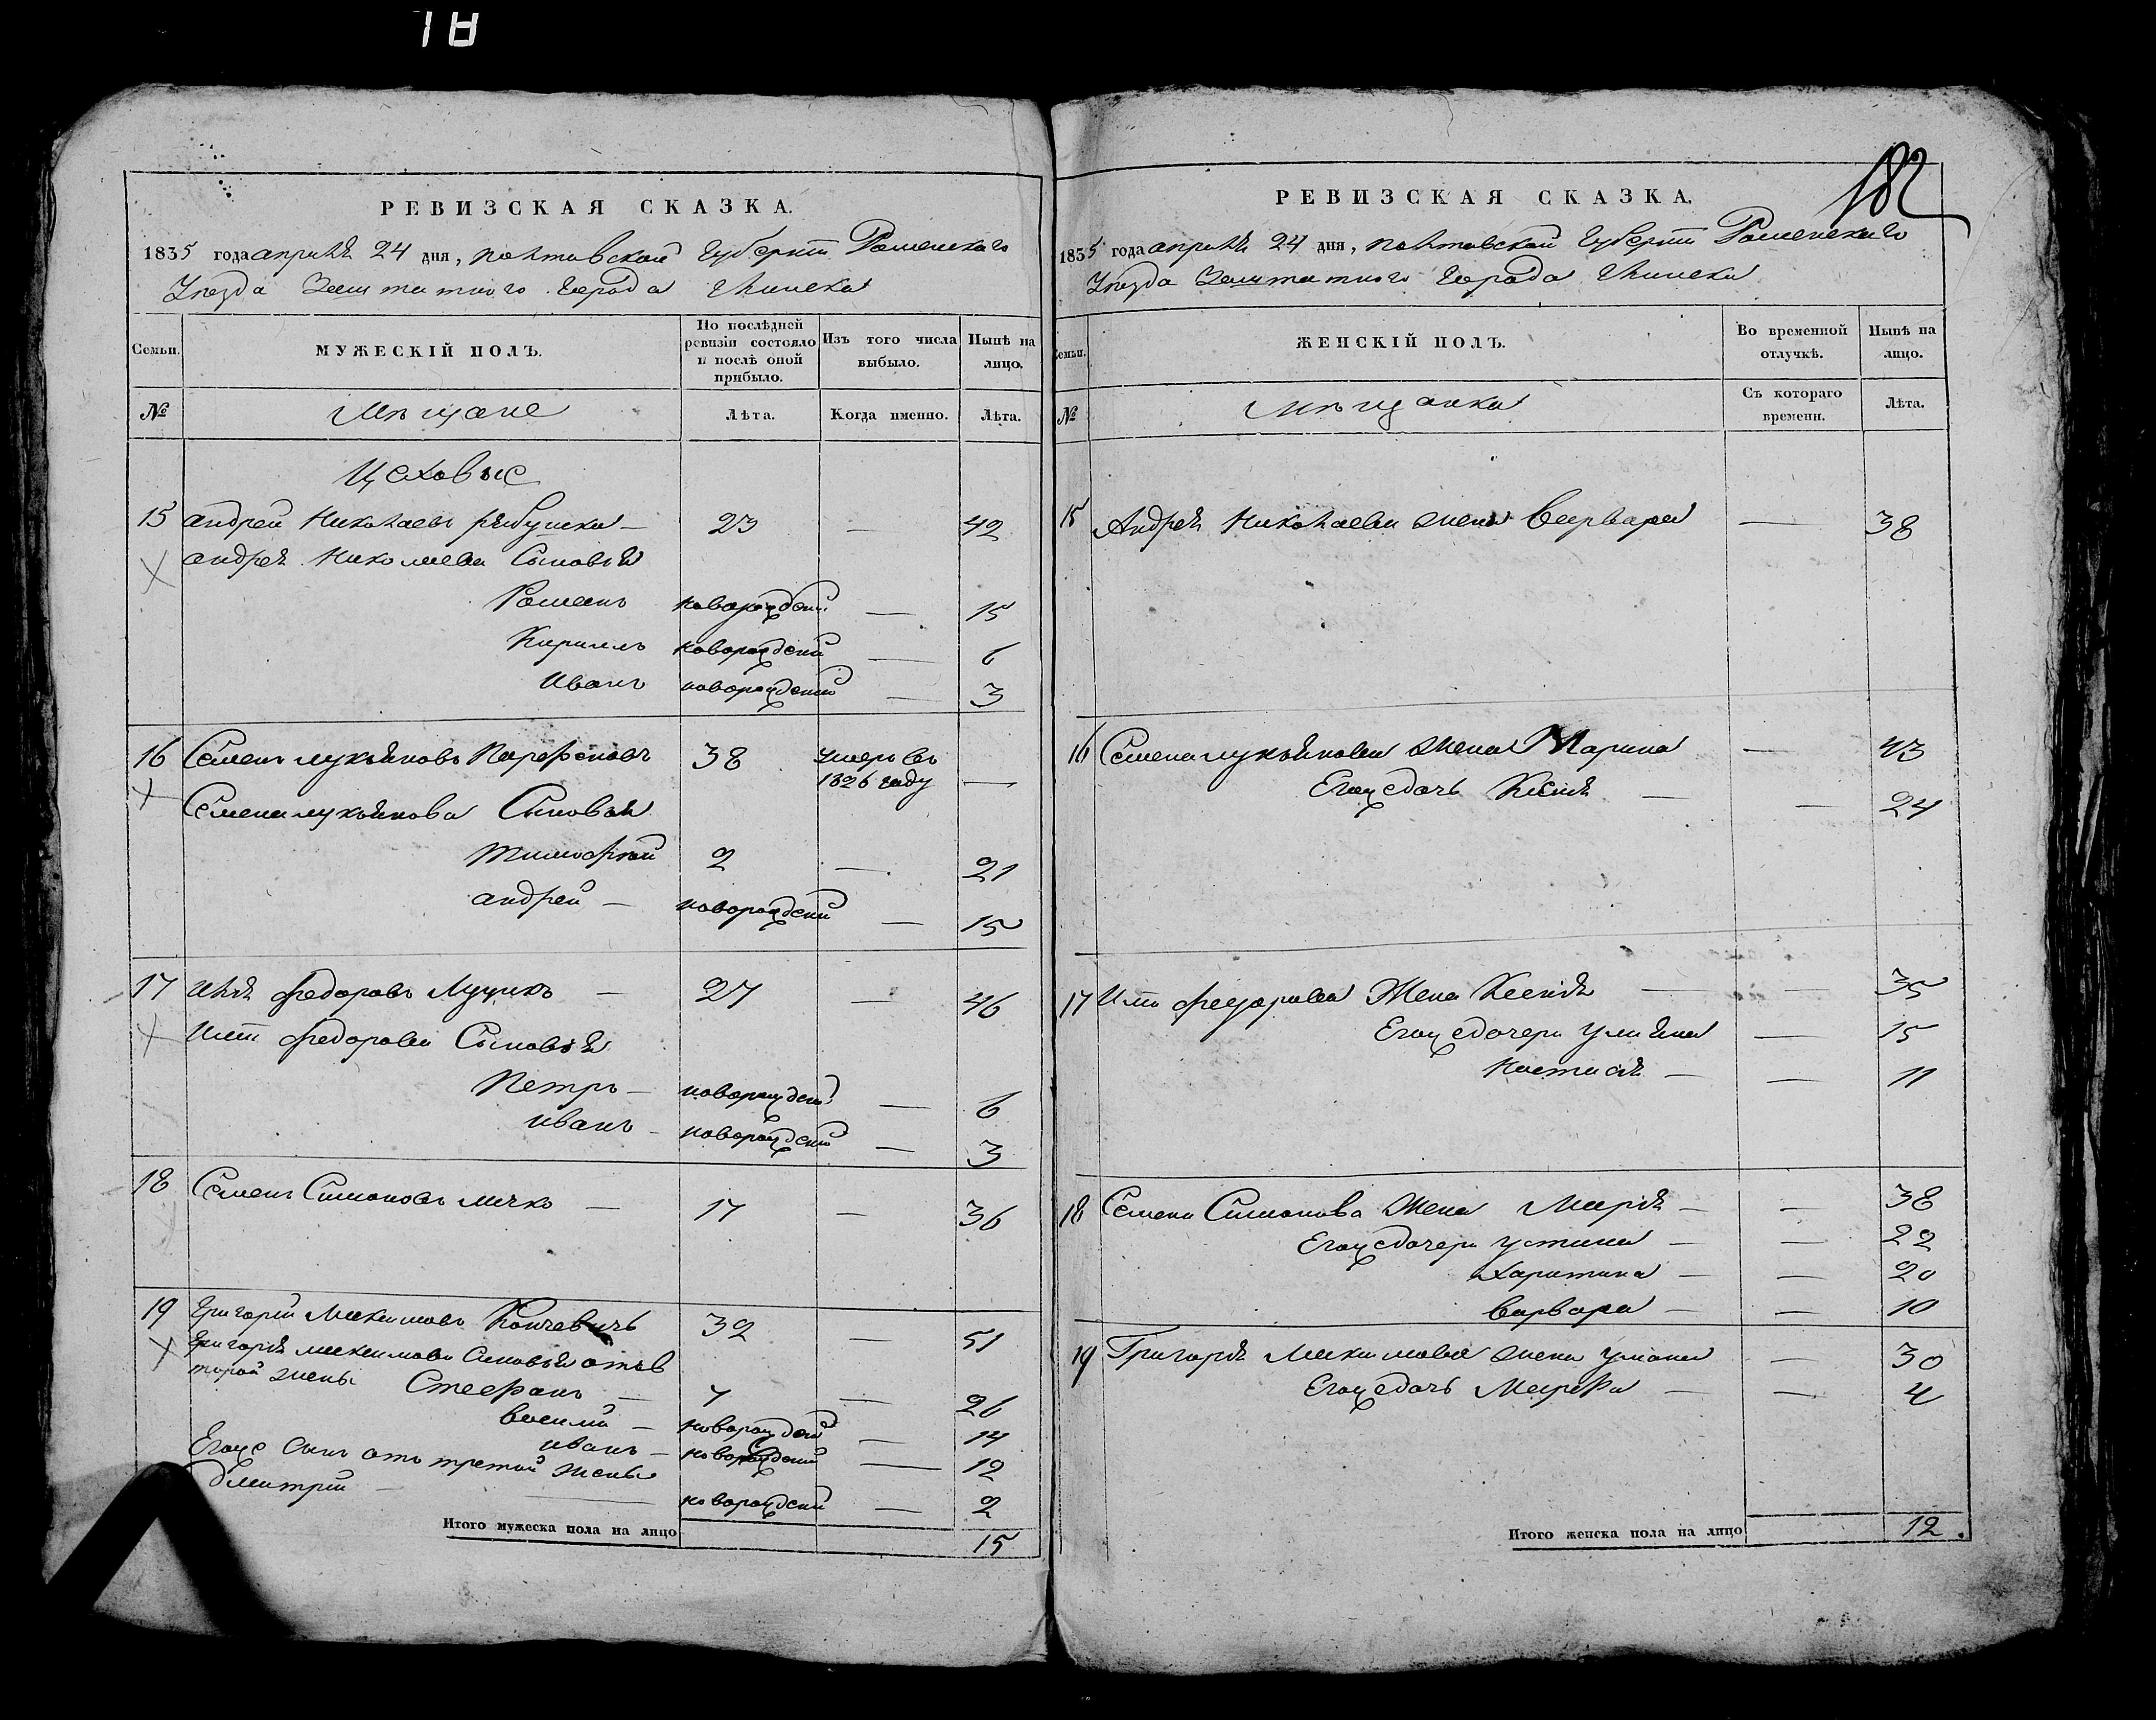 18
РЕВИЗСКАЯ СКАЗКА.
1835 года апреля 24 дня, полтавской Губернии Роменского
Уезда Заштатного города Глинска
Семьи. МУЖЕСКІЙ ПОЛЪ. По послѣдней ревизіи состояло и послѣ оной прибыло. Изъ того числа выбыло. Нынѣ на лицо.
№ Мѣщане Лѣта. Когда именно. Лѣта.
Цеховые
15 андрей Николаевъ рябушка — 23 — 42
андрея Николаева Сыновья
Романъ новорожденный — 15
Кириллъ новорожденный — 6
Иванъ новорожденный — 3
16 Семенъ лукьяновъ Парфеновъ 38 умеръ въ 1826 году —
Семена лукьянова Сыновья
тимофей 2 — 21
андрей — новорожденный — 15
17 илья федоровъ — 27 — 46
ильи федорова Сыновья
Петръ — новорожденный — 6
иванъ — новорожденный — 3
18 Семенъ Симоновъ — 17 — 36
19 григорий Максимовъ 32 — 51
григория максимова Сыновья отъ второй жены Стефанъ — 7 — 26
василий — новорожденный — 14
иванъ — новорожденный — 12
Егоже Сынъ отъ третей жены
дмитрий — новорожденный — 2
Итого мужеска пола на лицо 15
182
РЕВИЗСКАЯ СКАЗКА.
1835 года апреля 24 дня, полтавской Губернии Роменского
Уезда Заштатного города Глинска
Семьи. ЖЕНСКІЙ ПОЛЪ. Во временной отлучкѣ. Нынѣ на лицо.
№ Мѣщанки Съ котораго времени. Лѣта.
15 Андрея Николаева жена Варвара — 38
16 Семена лукьянова жена Марина — 43
Егоже дочь Ксенія — — 24
17 Ильи федорова Жена Ксенія — — 35
Егоже дочери ульяна — 15
Настасія — — 11
18 Семена Симонова Жена Марія — — 38
Егоже дочери устина — — 22
Харитина — — 20
варвара — — 10
19 Григорія Максимова жена уляна — 30
Егоже дочь Марфа — — 4
Итого женска пола на лицо 12.